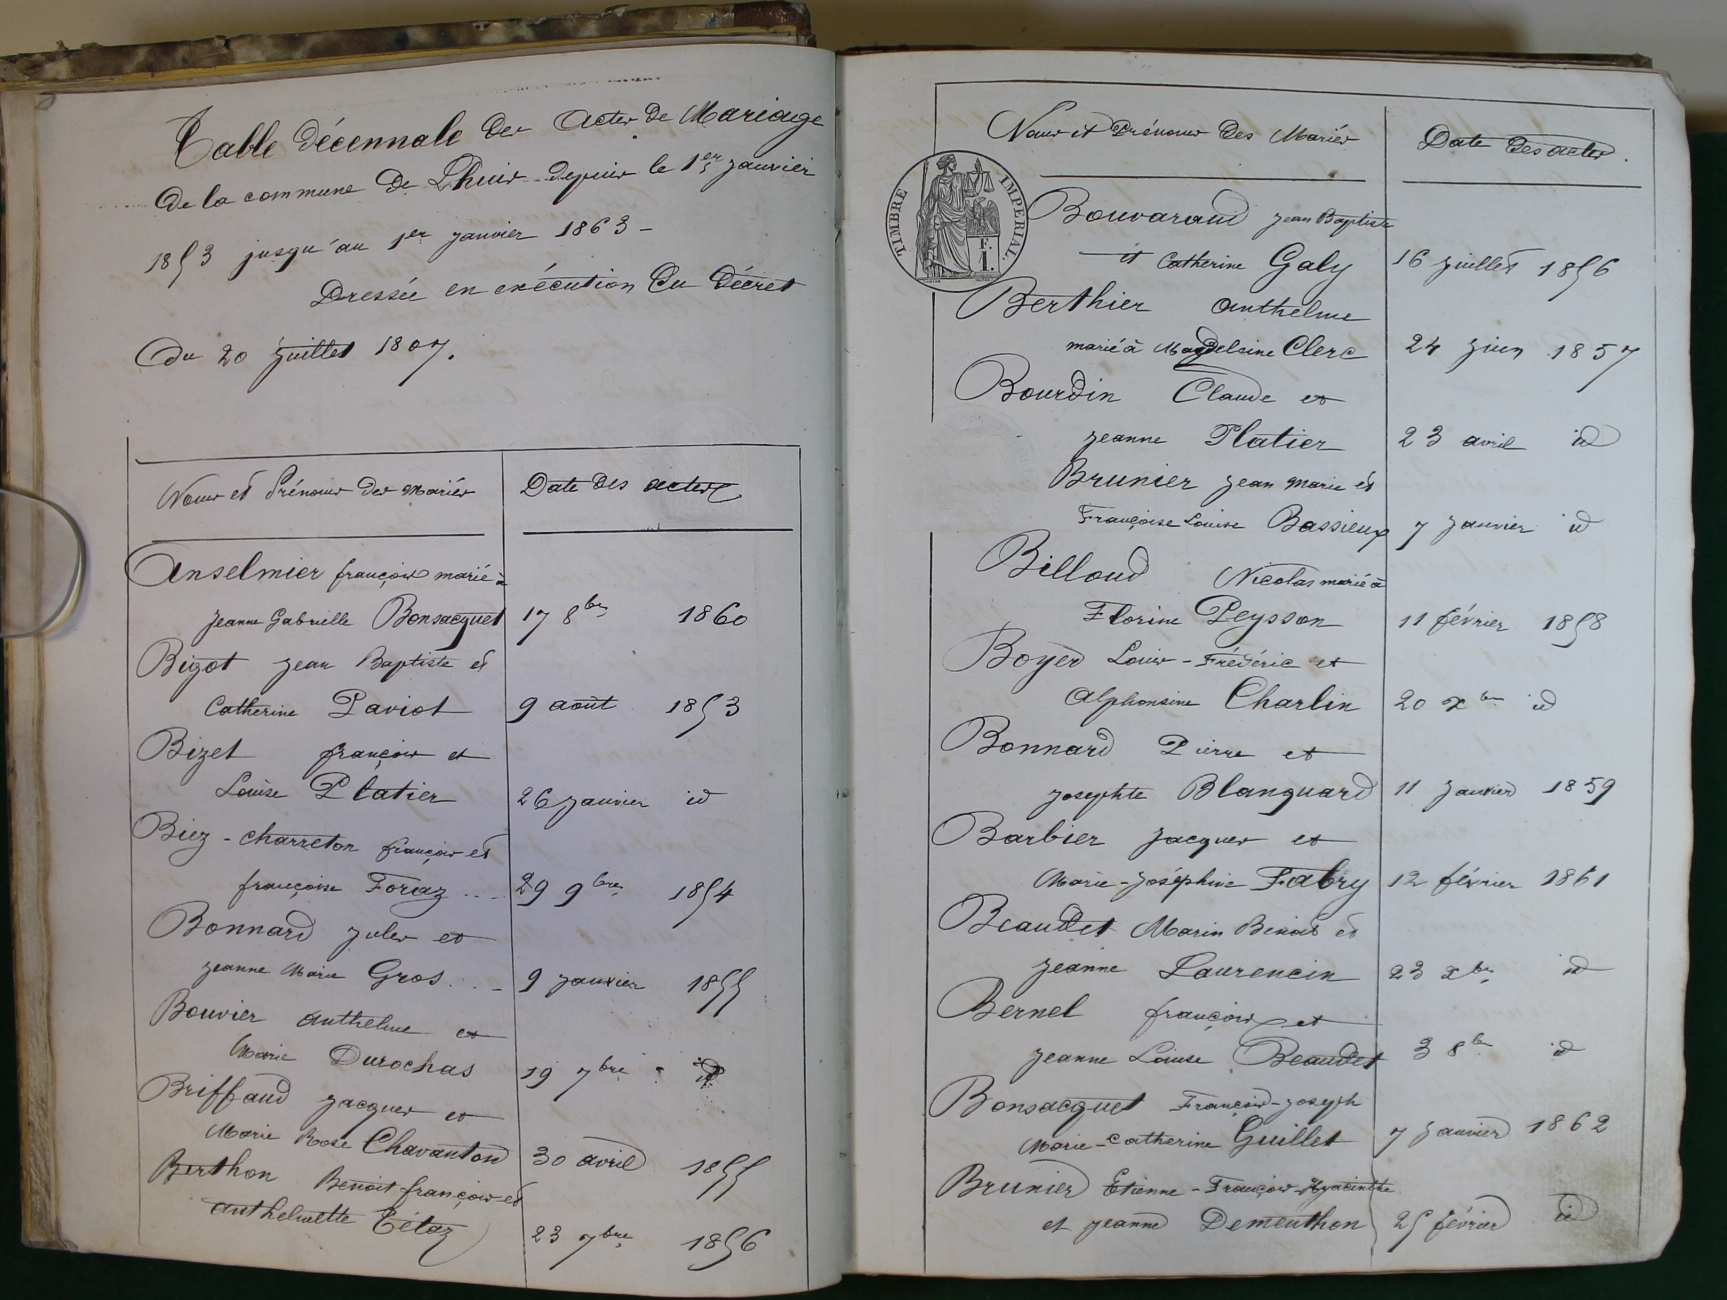 Table décennale des Actes de Mariage
de la commune de Lhuis depuis le 1er janvier
1853 jusqu'au 1er janvier 1863 -
Dressée en exécution du Décret
du 20 juillet 1807.
Noms et Prénoms des Mariés
Date des actes
Anselmier françois marié à
jeanne Gabrielle Bonsacquet 17 8bre 1860
Bizot jean Baptiste et
Catherine Paviot 9 août 1853
Bizet françois et
Louise Platier 26 janvier id
Biez-charreton françois et
françoise Foraz 29 9bre 1854
Bonnard jules et
jeanne Marie Gros 9 janvier 1855
Bouvier anthelme et
Marie Durochas 19 7bre id
Briffaud jacques et
Marie Rose Chavanton 30 avril 1855
Berthon Benoit françois et
anthelmette Tétaz 23 7bre 1856
Noms et Prénoms des Mariés
Date des actes.
TIMBRE IMPERIAL.
E.
I.
Bouvarand jean Baptiste
et Catherine Galy 16 juillet 1856
Berthier anthelme
marié à Magdeleine Clerc 24 juin 1857
Bourdin Claude et
jeanne Platier 23 avril id
Brunier jean marie et
Françoise Louise Bassieux 7 janvier id
Billoud Nicolas marié à
Florine Peysson 11 février 1858
Boyer Louis-Frédéric et
Alphonsine Charlin 20 xbre id
Bonnard Pierre et
josephte Blanquard 11 janvier 1859
Barbier jacques et
Marie-joséphine Fabry 12 février 1861
Beaudet Marin Benoit et
jeanne Laurencin 23 xbre id
Bernel françois et
jeanne Louise Beaudet 3 8bre id
Bonsacquet François-joseph
Marie-Catherine Guillet 7 janvier 1862
Brunier Etienne-François-Hyacinthe
et jeanne Dementhon 25 février id